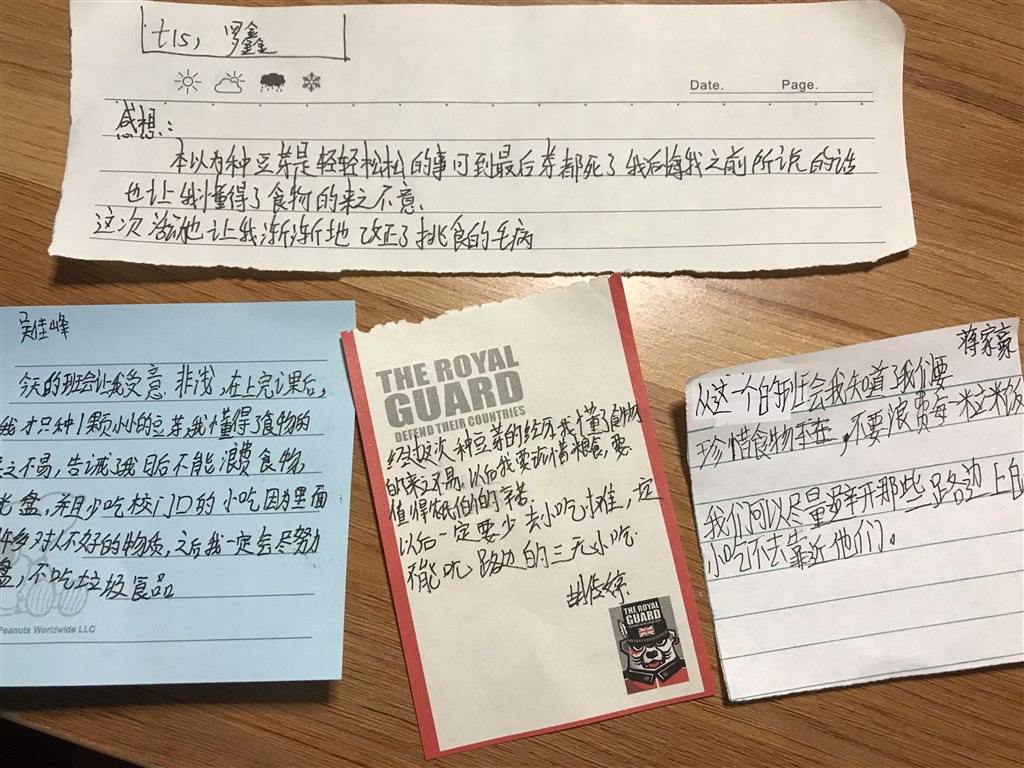 t15, 罗鑫
Date. Page.
感想：
本以为种豆芽是轻轻松松的事可到最后芽都死了我后悔我之前所说的话
也让我懂得了食物的来之不意.
这次活动也让我渐渐地改正了挑食的毛病
吴佳峰
今天的班会让我受意非浅,在上完课后,
我才只种1颗小小的豆芽,我懂得了食物的
来之不易,告诫了我日后不能浪费食物,
光盘,并且少吃校门口的小吃因为里面
许多对人不好的物质,之后我一定会尽努力
盘,不吃垃圾食品
Peanuts Worldwide LLC
THE ROYAL
GUARD
DEFEND THEIR COUNTRIES
经过这次种豆芽的经历,我懂了食物
的来之不易.以后我要珍惜粮食,要
值得低伯的辛苦.
以后一定要少去小吃摊,一定
不能吃路边的三无小吃.
胡
THE ROYAL
GUARD
蒋家豪
从这一个的班会我知道了我们要
珍惜食物,不要浪费每一粒米饭
我们可以尽量避开那些路边上的
小吃不去靠近他们。